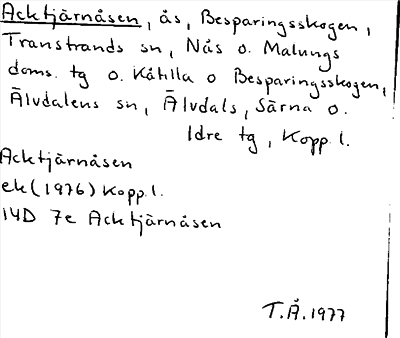 Acktjärnåsen, ås, Besparingsskogen,
Transtrands sn, Nås o. Malungs
doms. tg o. Kåtilla o Besparingsskogen,
Älvdalens sn, Älvdals, Särna o.
Idre tg, Kopp. l.
Acktjärnåsen
ek (1976) Kopp. l.
14D 7e Acktjärnåsen
T.Å. 1977